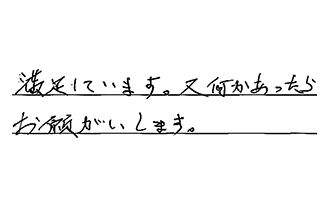 満足しています。又何かあったら
お願がいします。